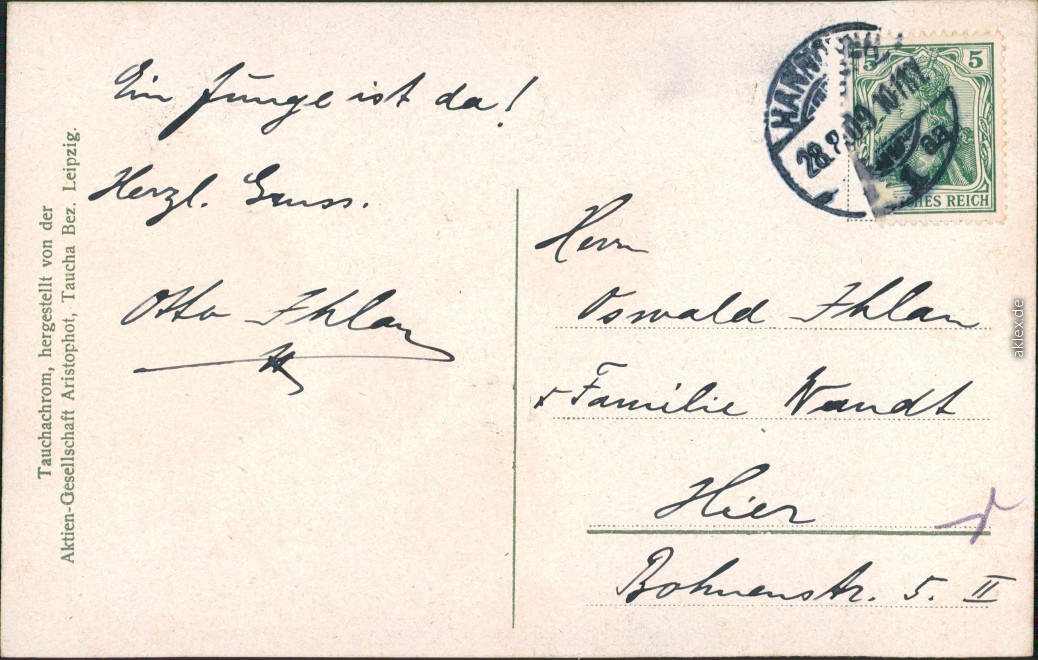 Ein Junge ist da!
Herzl. Gruss.
Otto Ihlau
Tauchachrom, hergestellt von der
Aktien-Gesellschaft Aristophot, Taucha Bez. Leipzig.
HANNOVER
28.8.09.10-11V
1
5 5
DEUTSCHES REICH
Herrn
Oswald Ihlau
Familie Wendt
Hier
Bohnenstr. 5. II
aklex.de